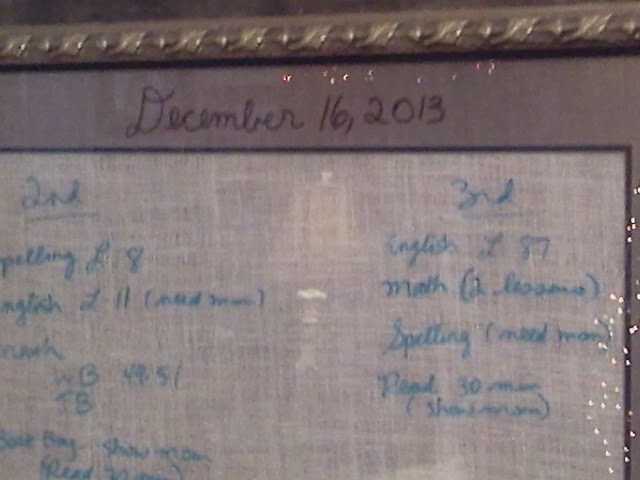 December 16, 2013
2nd
Spelling L 8
English L 11 (need mom)
math
WB 49-51
TB
Book Bag - show mom
(Read 30 min)
3rd
English L 87
Math (2 lessons)
Spelling (need mom)
Read 30 min
(show mom)